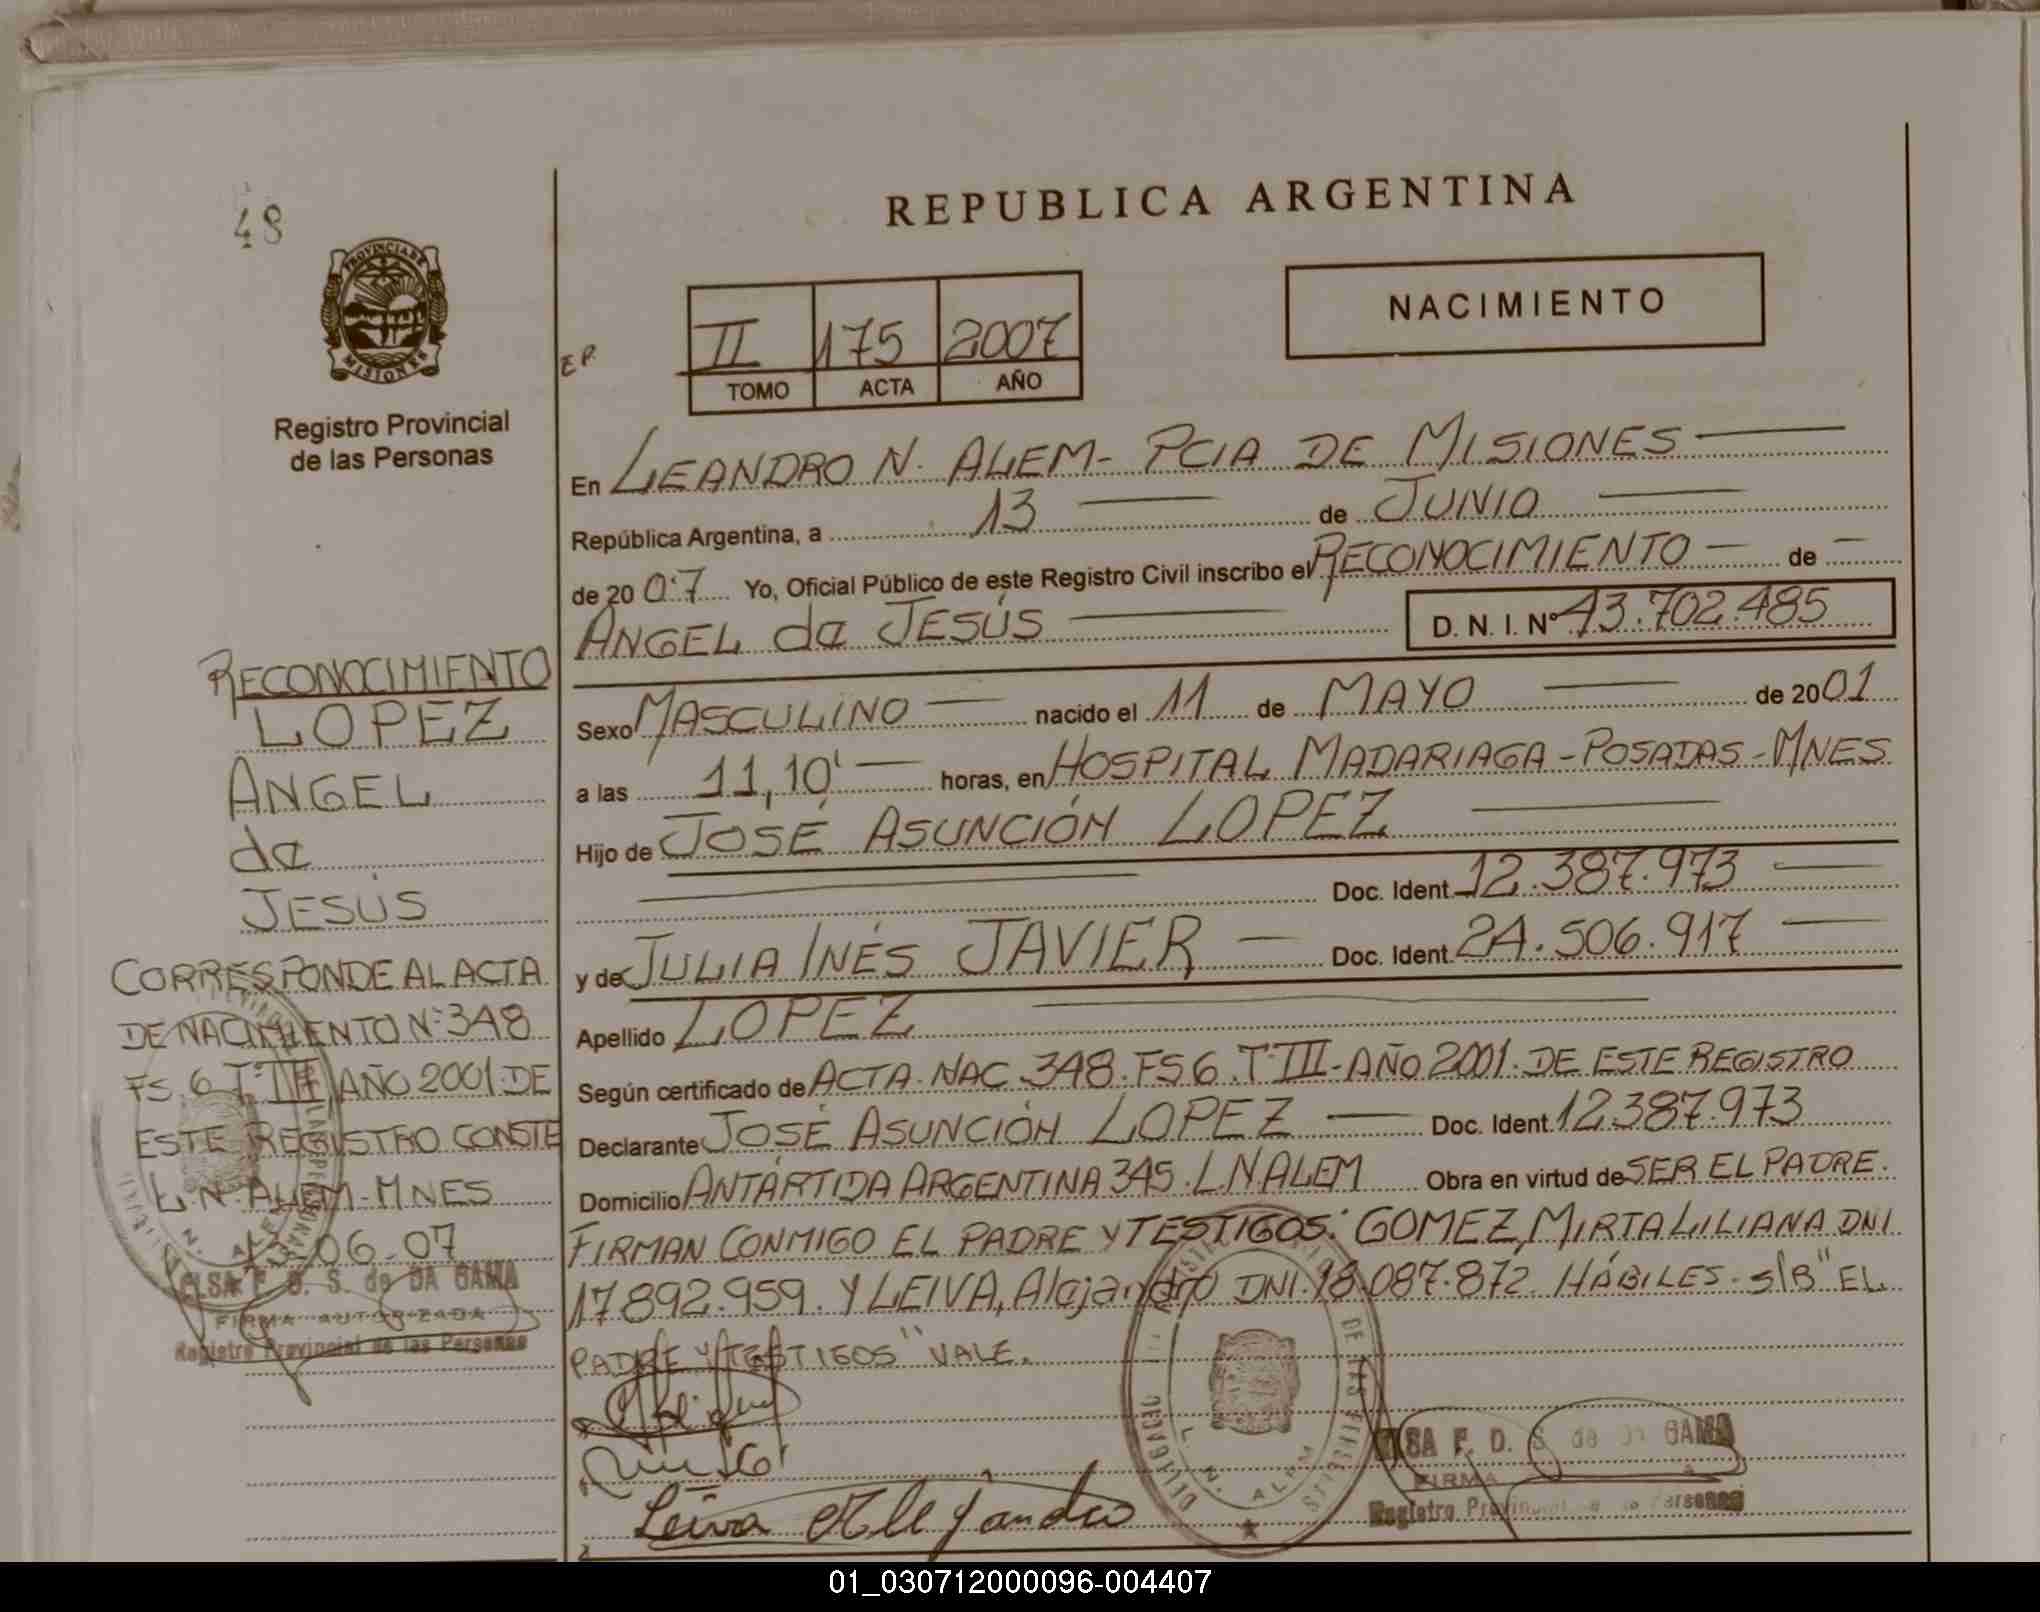 48
PROVINCIA DE
MISIONES
Registro Provincial
de las Personas
REPUBLICA ARGENTINA
NACIMIENTO
E.P.
II 175 2007
TOMO ACTA AÑO
En LEANDRO N. ALEM - PCIA DE MISIONES
República Argentina, a 13 de JUNIO
de 2007 Yo, Oficial Público de este Registro Civil inscribo el RECONOCIMIENTO de
ANGEL de JESÚS D. N. I. Nº 43.702.485
Sexo MASCULINO nacido el 11 de MAYO de 2001
a las 11,10' horas, en HOSPITAL MADARIAGA - POSADAS - MNES
Hijo de JOSÉ ASUNCIÓN LOPEZ
Doc. Ident. 12.387.973
y de JULIA INÉS JAVIER Doc. Ident. 24.506.917
Apellido LOPEZ
Según certificado de ACTA. NAC. 348. FS 6. Tº III - AÑO 2001. DE ESTE REGISTRO
Declarante JOSÉ ASUNCIÓN LOPEZ Doc. Ident. 12.387.973
Domicilio ANTÁRTIDA ARGENTINA 345. L N ALEM Obra en virtud de SER EL PADRE.
FIRMAN CONMIGO EL PADRE Y TESTIGOS: GOMEZ, MIRTA LILIANA DNI
17.892.959. Y LEIVA, Alejandro DNI. 18.087.872. HÁBILES. S/B "EL
PADRE Y TESTIGOS" VALE.
Leiva Alejandro
DELEGADO
DE LAS PERSONAS
L. N. ALEM
ELSA F. D. S. de DA GAMA
FIRMA
Registro Provincial de las Personas
RECONOCIMIENTO
LOPEZ
ANGEL
de
JESÚS
CORRESPONDE AL ACTA
DE NACIMIENTO Nº 348
FS. 6 Tº III AÑO 2001. DE
ESTE REGISTRO CONSTE
L. N. ALEM - MNES
13-06-07
ELSA F. D. S. de DA GAMA
FIRMA AUTORIZADA
Registro Provincial de las Personas
01_030712000096-004407